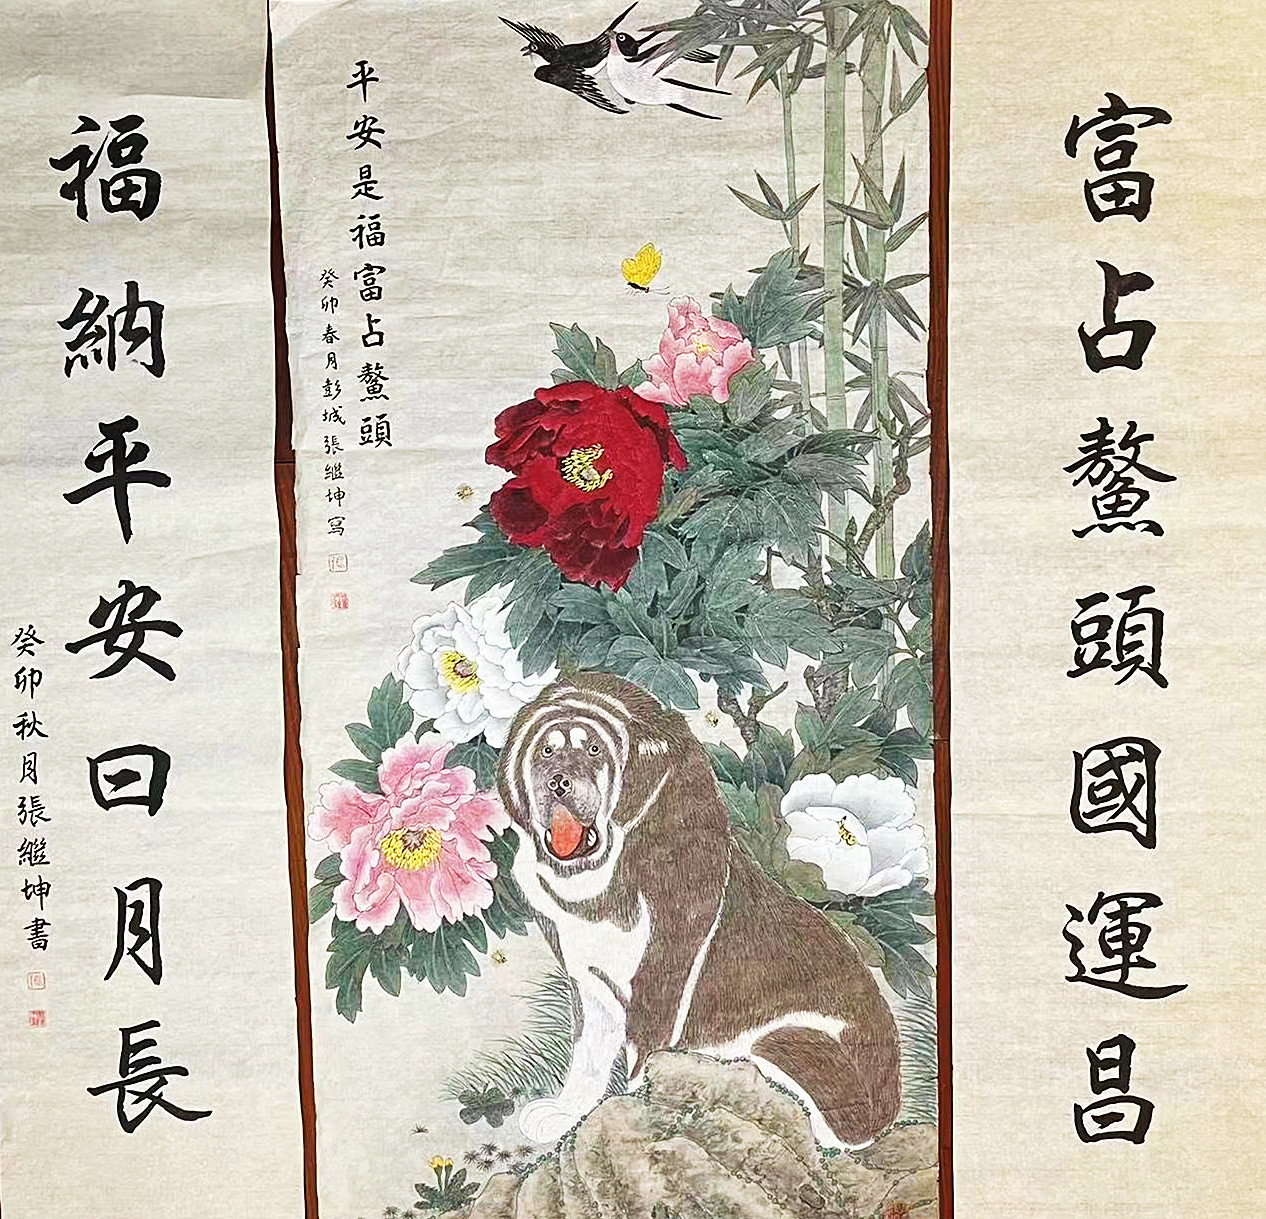 富占鰲頭國運昌
平安是福富占鰲頭
癸卯春月彭城張繼坤寫
福納平安日月長
癸卯秋月張繼坤書